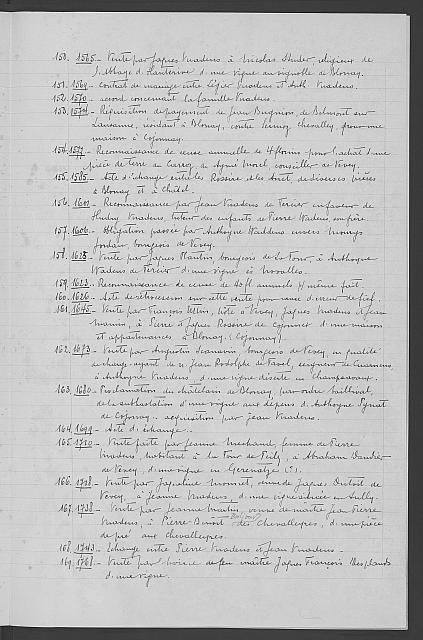 150. 1565 - Vente par Jaques Vuadens à Nicolas Studer, religieux de
l'Abbaye d'Hauterive d'une vigne au vignoble de Blonay.
151. 1569 - Contrat de mariage entre Léger Vuadens et Anth. Vuadens.
152. 1570 - accord concernant la famille Vuadens.
153. 1574 - Réquisition de payement de Jean Bugnion, de Belmont sur
Lausanne, résidant à Blonay, contre Chevalley, pour une
maison à Cojonnay.
154. 1577 - Reconnaissance de cense annuelle de 4 florins pour l'achat d'une
pièce de terre au à Agné Morel conseiller de Vevey.
155. 1585 - Acte d'échange entre les Rossire et les de diverses pièces
à Blonay et à Châtel.
156. 1601 - Reconnaissance par Jean Vuadens de Tercier en faveur de
Vuadens, tuteur des enfants de Pierre Wadens, son frère.
157. 1606 - Obligation passée par Anthoyne Waddens envers
Jordain, bourgeois de Vevey.
158. 1623 - Vente par Jaques Plantin, bourgeois de La Tour, à Anthoyne
Wadens de Tercier d'une vigne ès Novalles.
159. 1623 - Reconnaissance de cense de annuels p/ même fait.
160. 1626 - Acte de rétrocession sur cette vente pour cause d'erreur de fief.
161. 1645 - Vente par François hôte à Vevey, Jaques Vuadens et Jean
Mamin, à Pierre et Jaques Rossire de Cojonnex d'une maison
et appartenances à Blonay. (Cojonnay)
162. 1673 - Vente par Augustin bourgeois de Vevey, en qualité
de charge-ayant de n. Jean Rodolphe de Tavel, seigneur de
à Anthoyne Vuadens d'une vigne discrète en Champsavaux.
163. 1680 - Proclamation du châtelain de Blonay, par ordre baillival,
de la subhastation d'une vigne aux dépens d'Anthoyne
de Cojonay - acquisition par Jean Vuadens.
164. 1699 - Acte d'échange.
165. 1720 - Vente faite par Jeanne femme de Pierre
Vuadens habitant à la Tour de Peilz, à Abraham
de Vevey, d'une vigne en
166. 1738 - Vente par Jaqueline Monnet, veuve de Jaques Dutoit de
Vevey, à Jeanne Vuadens, d'une vigne située en Sully.
167. 1738 - Vente par Jeanne Martin, veuve de maître Jean Pierre
Vuadens, à Pierre Benoît des Chevalleyres, d'une pièce
de pré aux chevalleyres.
168. 1743 - Echange entre Pierre Vuadens et Jean Vuadens -
169. 1768 - Vente par l'hoirie de feu maître Jaques François Desplands
d'une vigne.